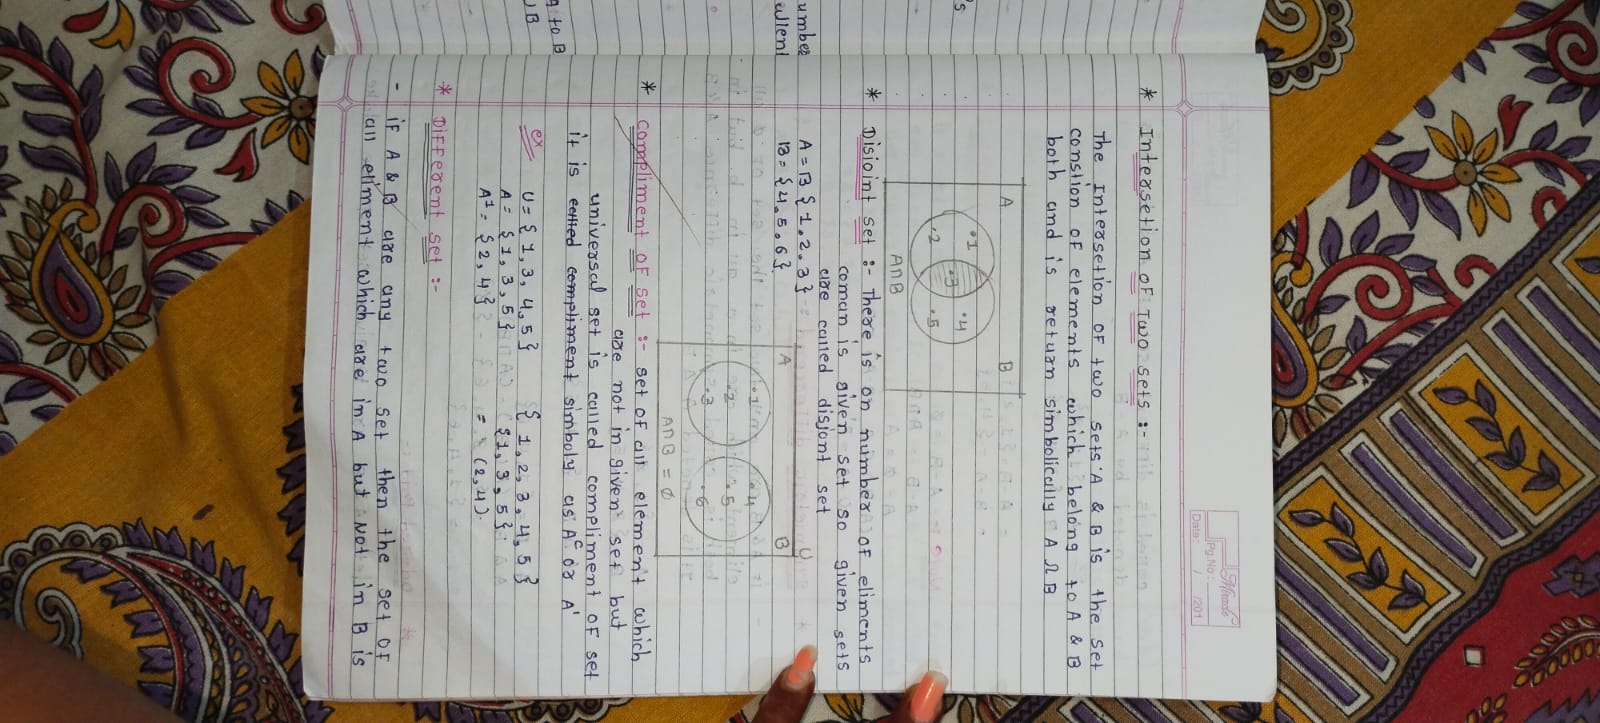 Pg.No:
Date: / /201
* Intersetion of Two sets :-
The Intersetion of two sets A & B is the set
constion of elements which belong to A & B
both and is return simbolically A ∩ B
A B
.1 .2 .3 .4 .5
A∩B
* Disjoint set :- There is on number of eliments
coman is given set so given sets
are called disjont set
A = B {1.2.3}
B = {4.5.6}
U
A B
.1 .2 .3 .4 .5 .6
A∩B = ∅
* compliment of set :- set of all element which
are not in given set but
universal set is called compliment of set
it is called compliment simboly as Aᶜ or A'
ex U = {1,3,4,5} {1,2,3,4,5}
A = {1,3,5} - {1,3,5}
A¹ = {2,4} = (2,4).
* Different set :-
- if A & B are any two set then the set of
all eliment which are in A but Not in B is
umber
wlient
g to B
UB